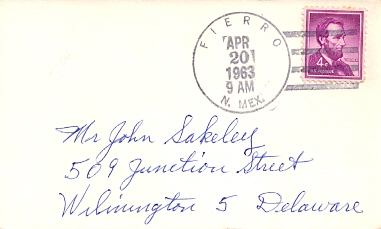 FIERRO
APR
20
1963
9 AM
N. MEX.
4¢
Mr John Sakeley
509 Junction Street
Wilmington 5 Delaware